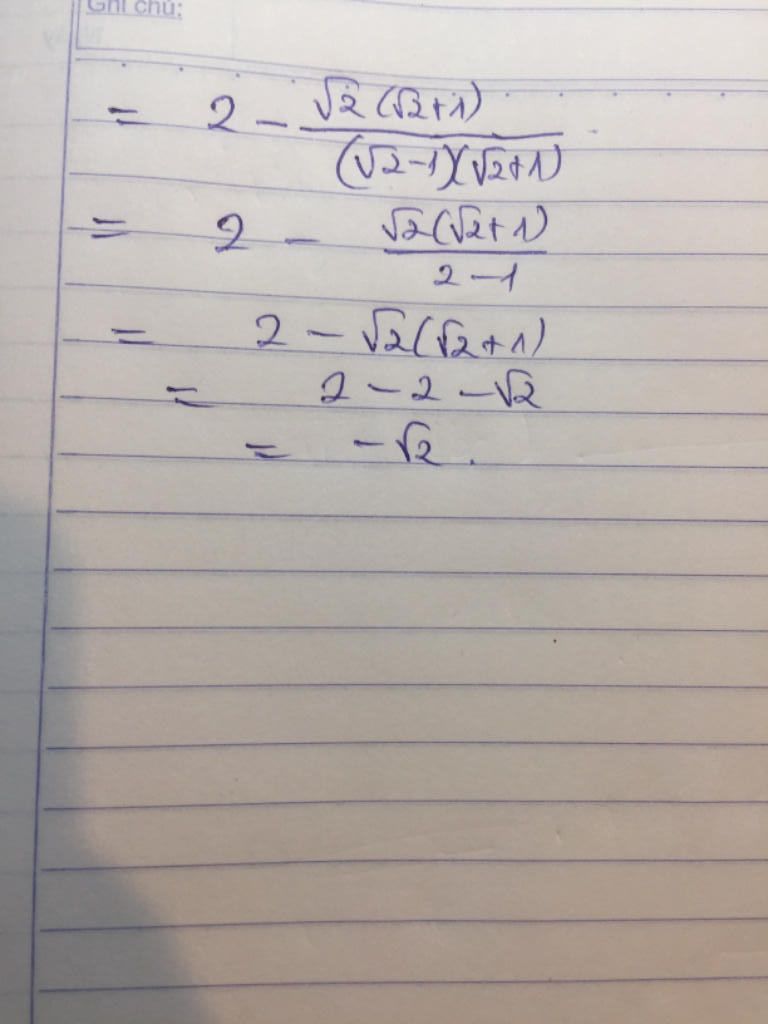 Ghi chú:
= 2 - √2(√2+1) / (√2-1)(√2+1)
= 2 - √2(√2+1) / 2-1
= 2 - √2(√2+1)
= 2 - 2 - √2
= -√2.